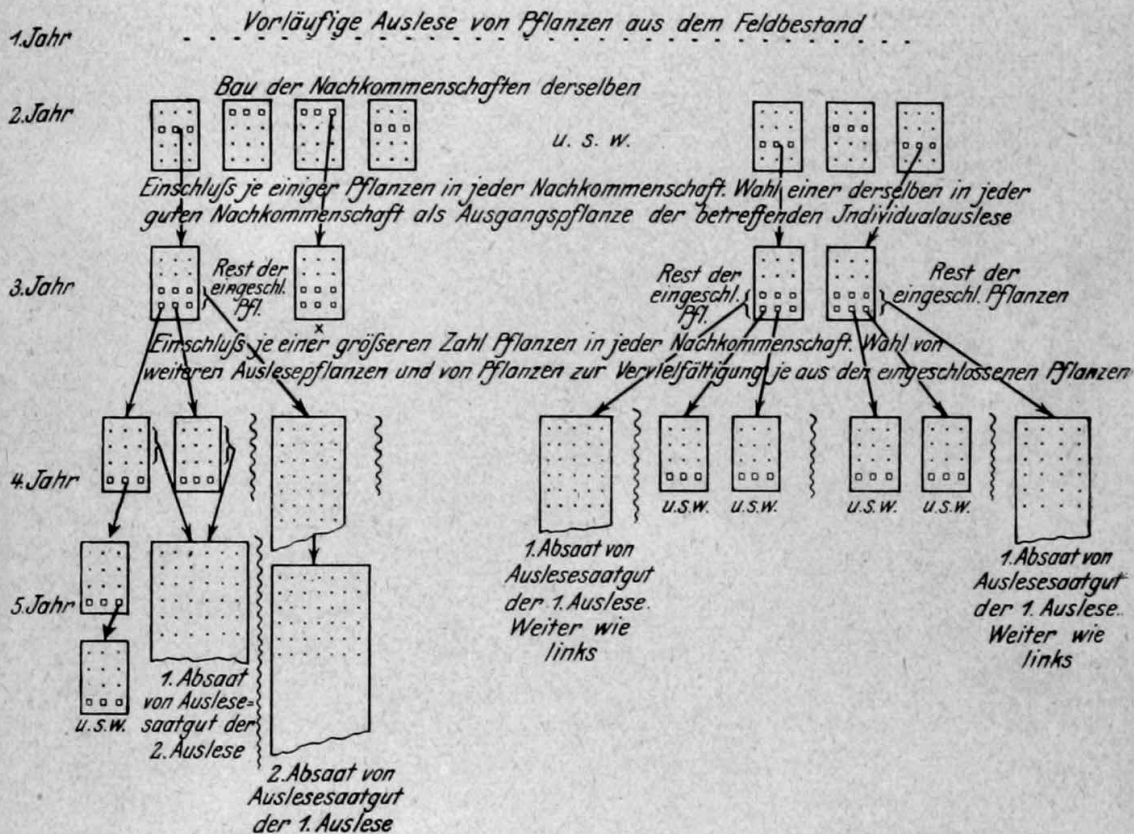 1.Jahr
Vorläufige Auslese von Pflanzen aus dem Feldbestand
Bau der Nachkommenschaften derselben
2.Jahr
u. s. w.
Einschluß je einiger Pflanzen in jeder Nachkommenschaft. Wahl einer derselben in jeder
guten Nachkommenschaft als Ausgangspflanze der betreffenden Individualauslese
3.Jahr
Rest der
eingeschl.
Pfl.
x
Rest der
eingeschl.
Pfl.
Rest der
eingeschl. Pflanzen
Einschluß je einer größeren Zahl Pflanzen in jeder Nachkommenschaft. Wahl von
weiteren Auslesepflanzen und von Pflanzen zur Vervielfältigung je aus den eingeschlossenen Pflanzen
4.Jahr
u.s.w.
u.s.w.
u.s.w.
u.s.w.
1. Absaat von
Auslesesaatgut
der 1. Auslese.
Weiter wie
links
1. Absaat von
Auslesesaatgut
der 1. Auslese.
Weiter wie
links
5.Jahr
u.s.w.
1. Absaat
von Auslese=
saatgut der
2. Auslese
2. Absaat von
Auslesesaatgut
der 1. Auslese